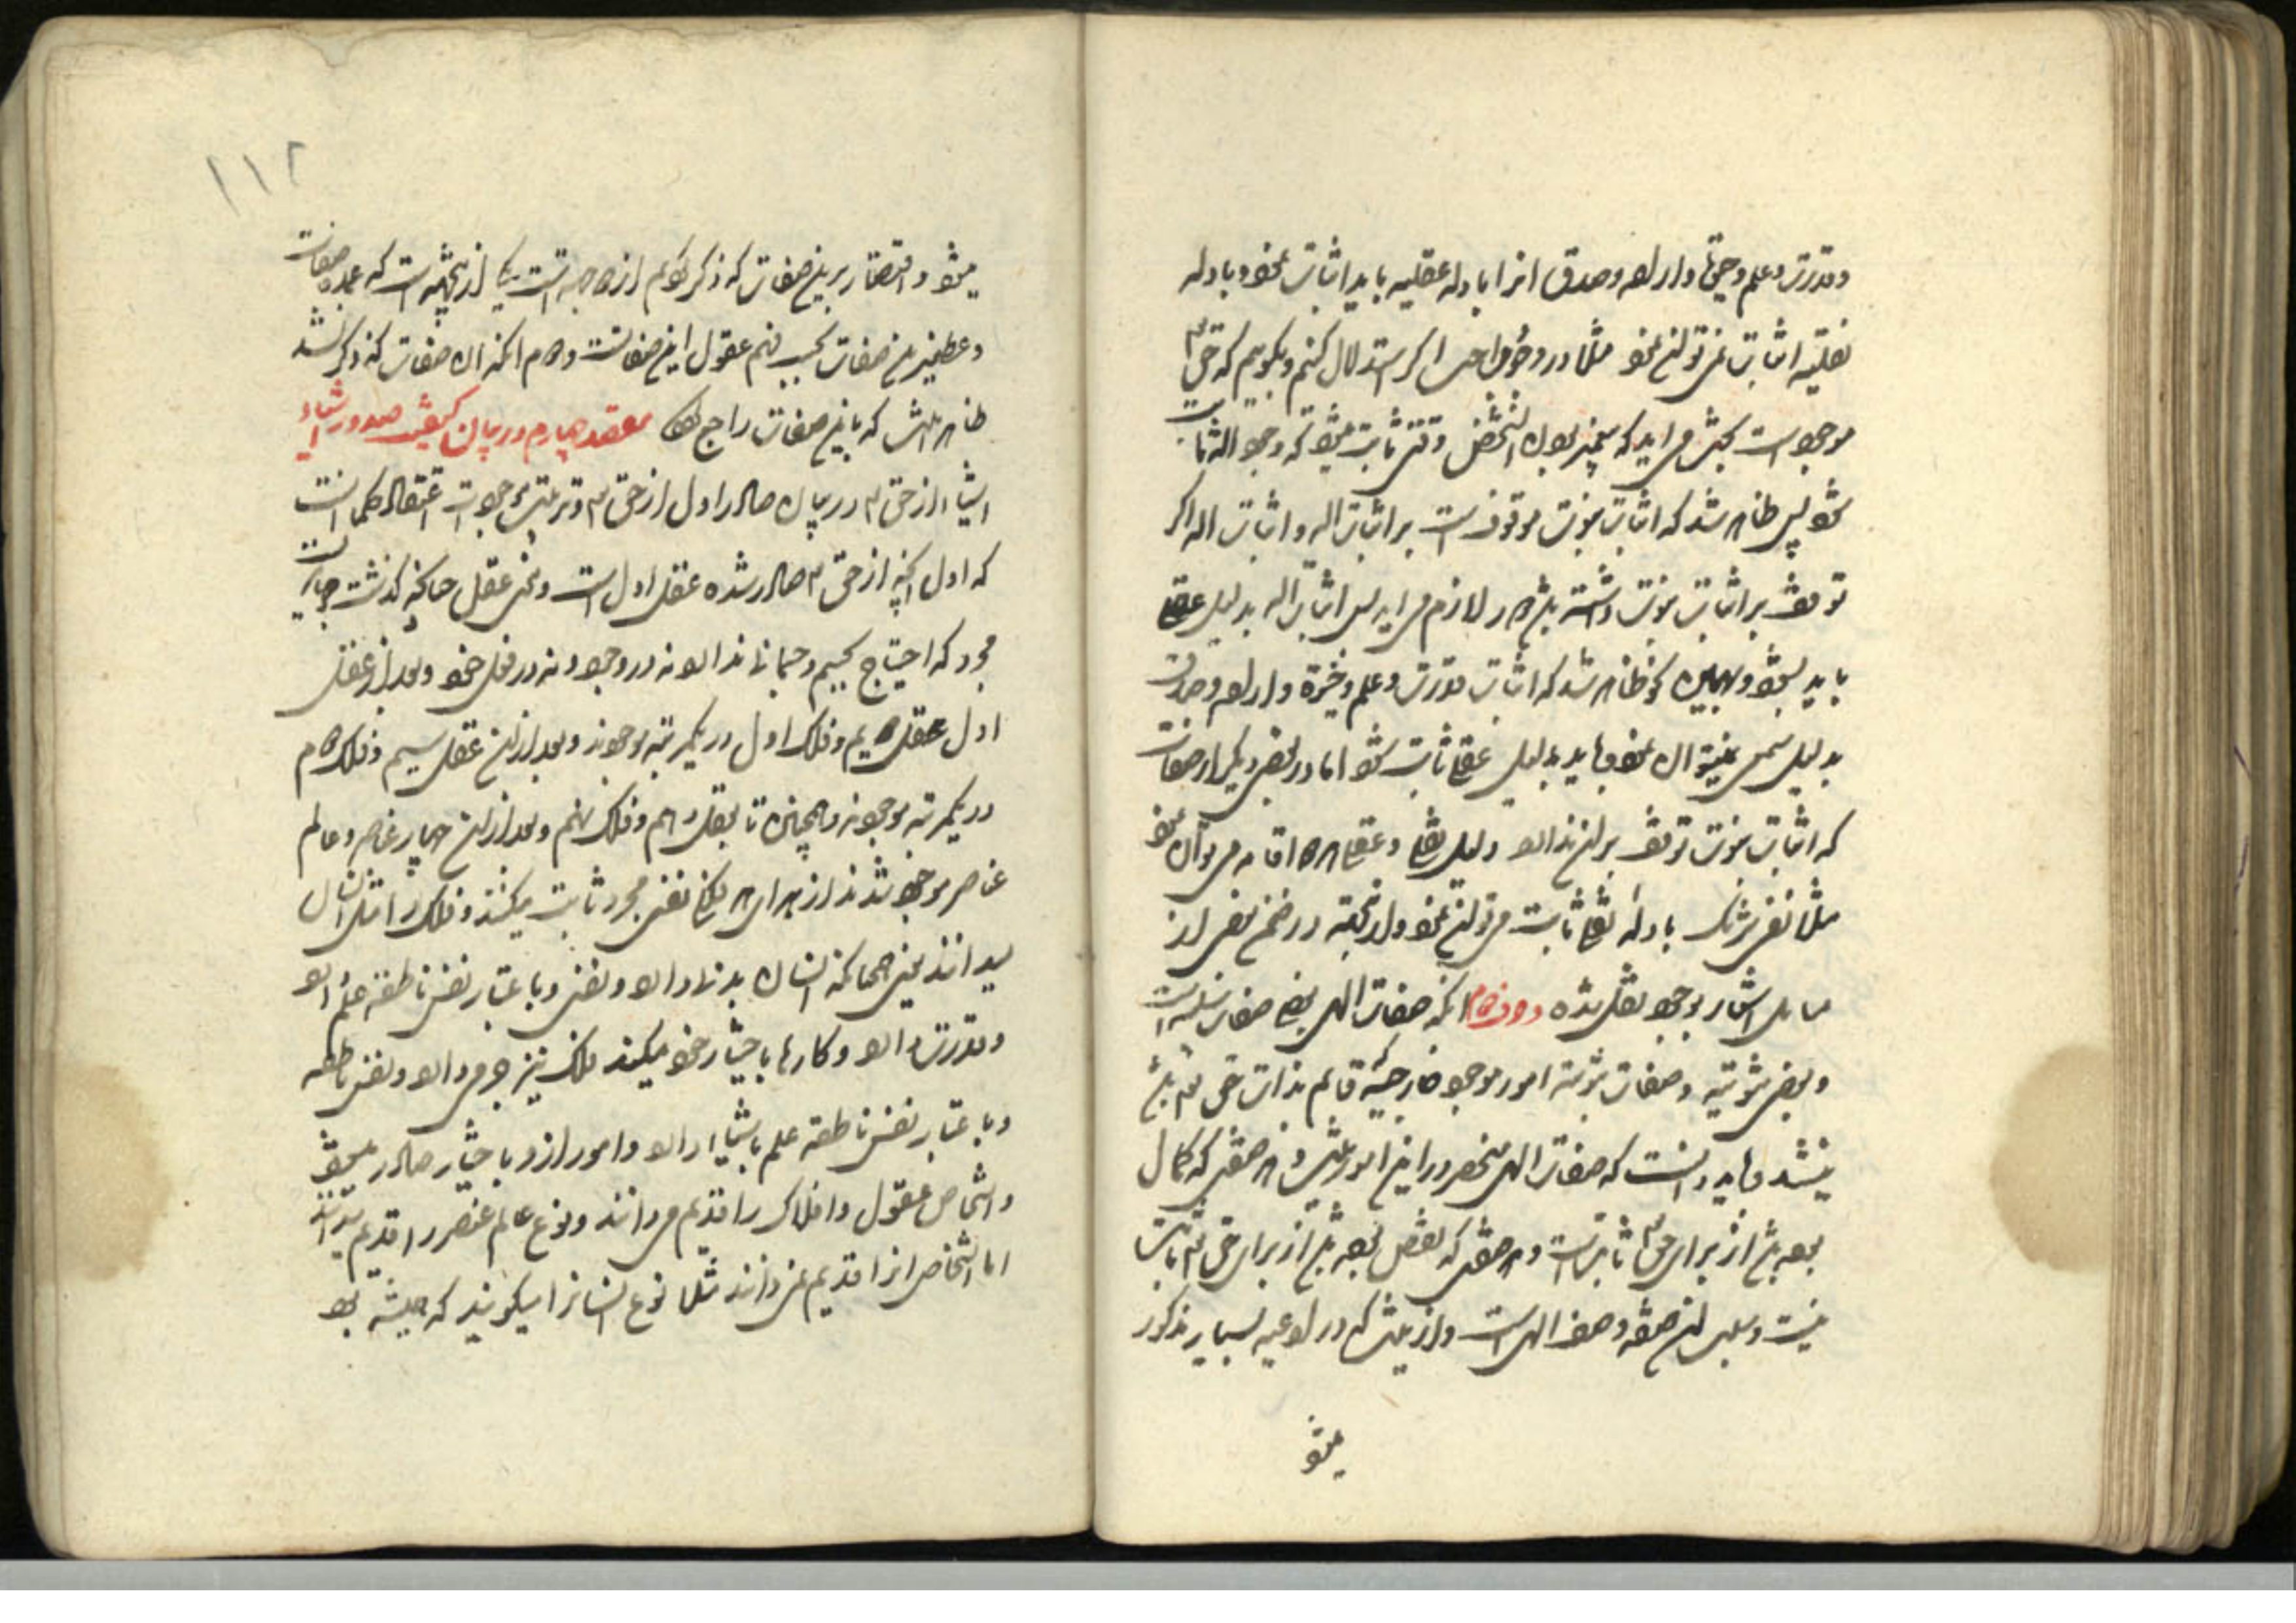 وقدرت و علم و حیوة و اراده و صدق انرا بادله عقلیه باید اثبات نمود و بادله
نقلیه اثبات نمی توان نمود مثلا در وجود واجب اگر استدلال کنیم و بگویم که حق تع
موجودست بجهت می اید که پیغمبر بودن وقتی ثابت میشود که وجود اله ثابت
شود پس ظاهر شد که اثبات نبوت موقوفست بر اثبات اله و اثبات اله اگر
توقف بر اثبات نبوت داشته باشد دور لازم می اید پس اثبات اله بدلیل عقلی
باید بشود و بهمین نحو ظاهر شد که اثبات قدرت و علم و حیوة و اراده و صدق
بدلیل سمعی نمیتوان نمود و باید بدلیل عقلی ثابت شود اما در بعضی دیگر از صفات
که اثبات نبوت توقف بر ان ندارد دلیل نقلی و عقلی هر دو اقامه می توان نمود
مثلا نفی شریک بادله نقلی ثابت می توان نمود و لد نجهته در ضمن بعضی از
مسایل اشاره بوجوه نقلی شده دوم انکه صفات الهی بعضی صفات سلبیه است
و بعضی ثبوتیه و صفات ثبوتیه امور موجود خارجیه قایم بذات حق تع
نیستند و باید دانست که صفات الهی منحصر در این امور نیست و هر صفتی که کمال
بوده باشد از برای حق تع ثابتست و هر صفتی که نقص بوده باشد از برای حق تع ثابت
نیست و سلب ان صفت وصف الهی است و از اینست که در ادعیه بسیار مذکور
میشود
۱۱۲
میشود و اقتصار بر این صفات که ذکر کردیم از دو جهة است یکی از نجهته است که عمده صفات
و عظیمترین صفات بحسب فهم عقول این صفاتست و دوم انکه ان صفات که ذکر نشد
ظاهر باشد که باین صفات راجع مقصد چهارم در بیان کیفیت صدور اشیاء
اشیاء از حق تع و در بیان صادر اول از حق تع و ترتیب موجودات اعتقاد حکما انست
که اول انچه از حق تع صادر شده عقل اول است و معنی عقل چنانکه گذشت
مجرد که احتیاج بجسم و جسمانی ندارد نه در وجود و نه در فعل خود و بعد از عقل
اول عقل دویم و فلک اول در یکمرتبه موجودند و بعد از ان عقل سیم و فلک دوم
در یکمرتبه موجودند و همچنین تا بعقل دهم و فلک نهم و بعد از ان چهار عناصر و عالم
عناصر موجود شدند از برای هر فلکی نفس مجرد ثابت میکنند و فلک را مثل انسان
میدانند یعنی همچنانکه انسان بدنی دارد و نفسی و باعتبار نفس ناطقه علم دارد
و قدرت دارد و کارها باختیار خود میکند فلک نیز جرمی دارد و نفس ناطقه
و باعتبار نفس ناطقه علم باشیاء دارد و امور ازو باختیار صادر میشود
و اشخاص عقول و افلاک را قدیم می دانند و نوع عالم عنصر را قدیم میدانند
اما اشخاص انرا قدیم نمی دانند مثلا نوع انسانرا میگویند که همیشه بود